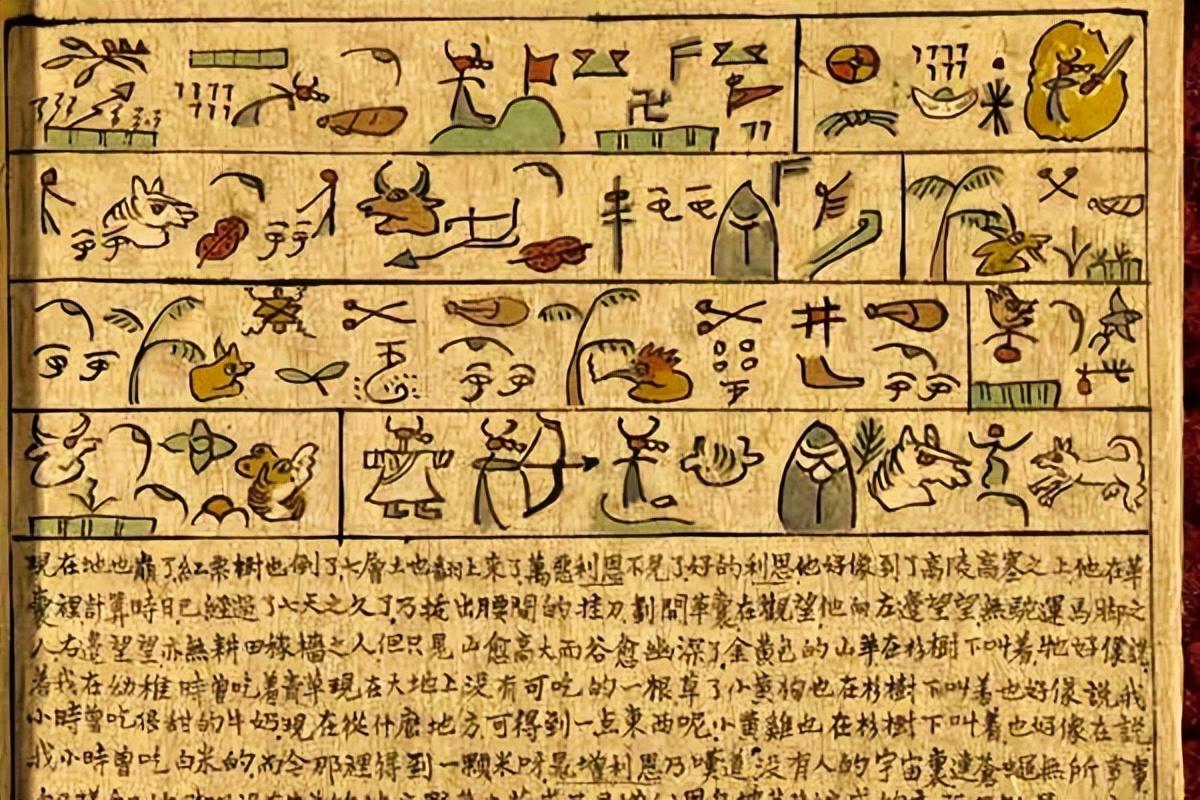 現在地也崩了紅栗樹也倒了七層土也翻上來了萬惡利恩不見了好的利恩他好像到了高陵高寒之上他在革
囊裡計算時日已經過了七天之久了乃拔出腰間的挂刀劃開革囊在觀望他向左邊望望無馱運馬脚之
人右邊望望亦無耕田稼穡之人但只見山愈高大而谷愈幽深了金黃色的山羊在杉樹下叫着牠好像説
着我在幼稚時曾吃着青草現在大地上没有可吃的一根草了小黃狗也在杉樹下叫着也好像説我
小時曾吃很甜的牛奶現在從什麽地方可得到一点東西呢小黃雞也在杉樹下叫着也好像在説
我小時曾吃白米的而今那裡得到一顆米呀是增利恩乃嘆道没有人的宇宙裏連蒼蠅無所事事